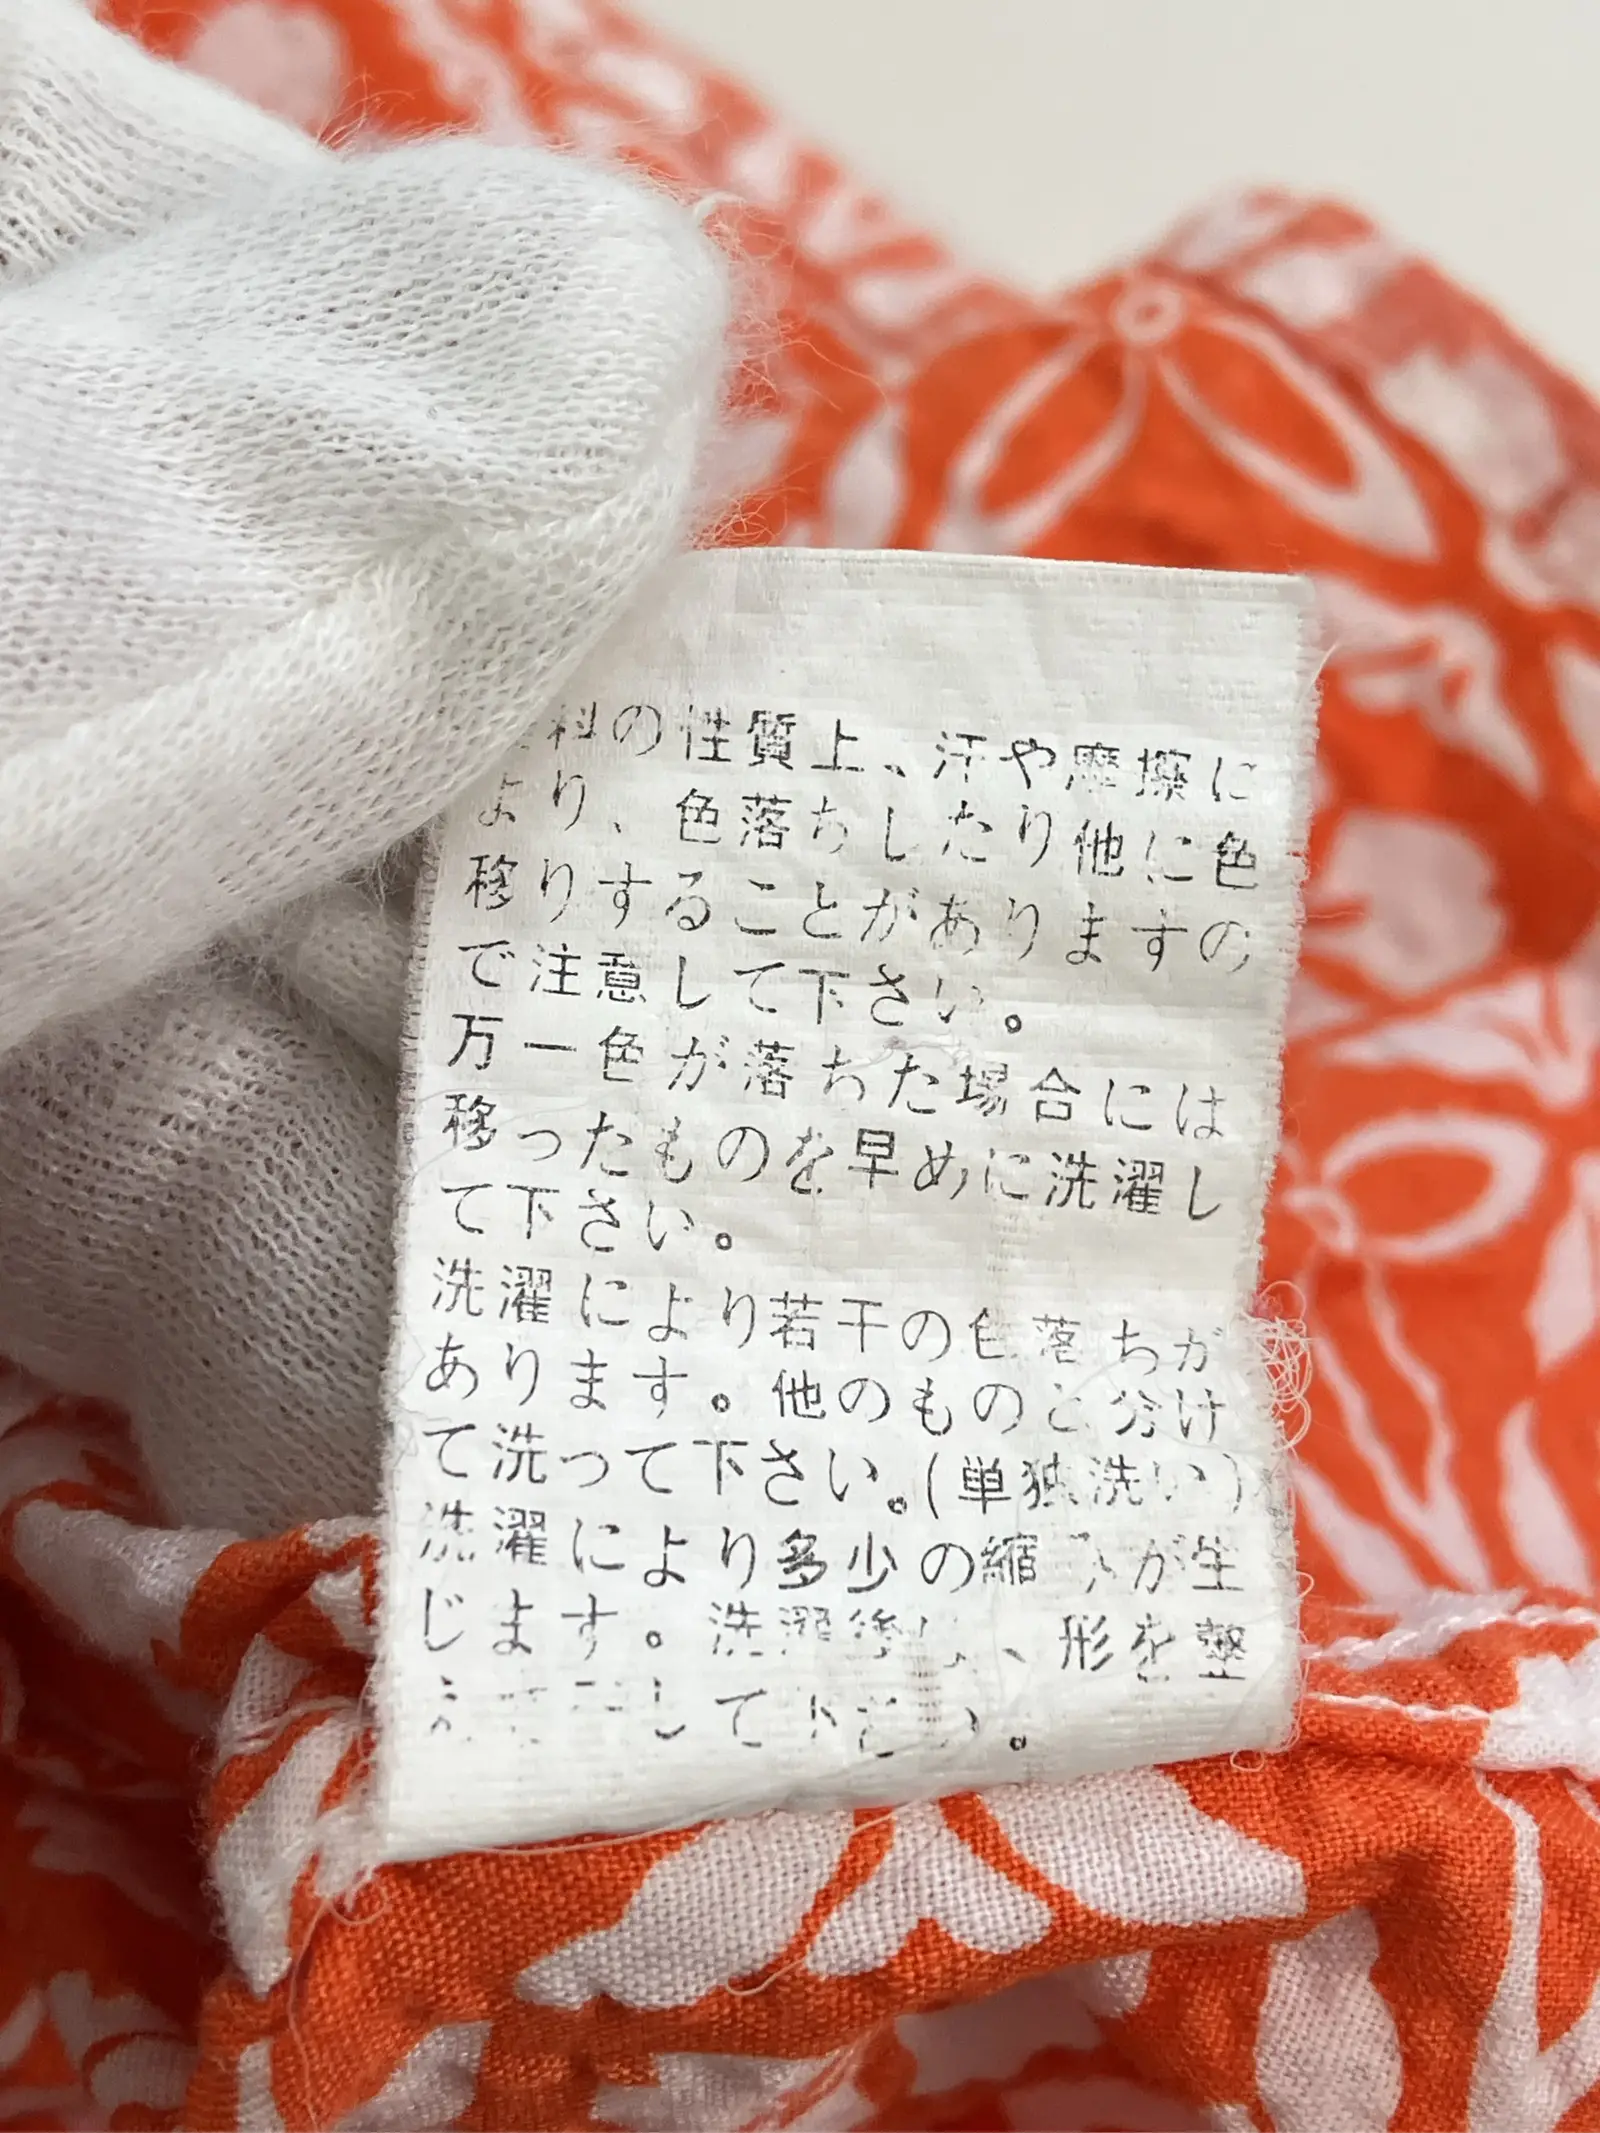 料の性質上、汗や摩擦に
より、色落ちしたり他に色
移りすることがありますの
で注意して下さい。
万一色が落ちた場合には
移ったものを早めに洗濯し
て下さい。
洗濯により若干の色落ちが
あります。他のものと分け
て洗って下さい。(単独洗い)
洗濯により多少の縮みが生
じます。洗濯後は、形を整
して下さい。